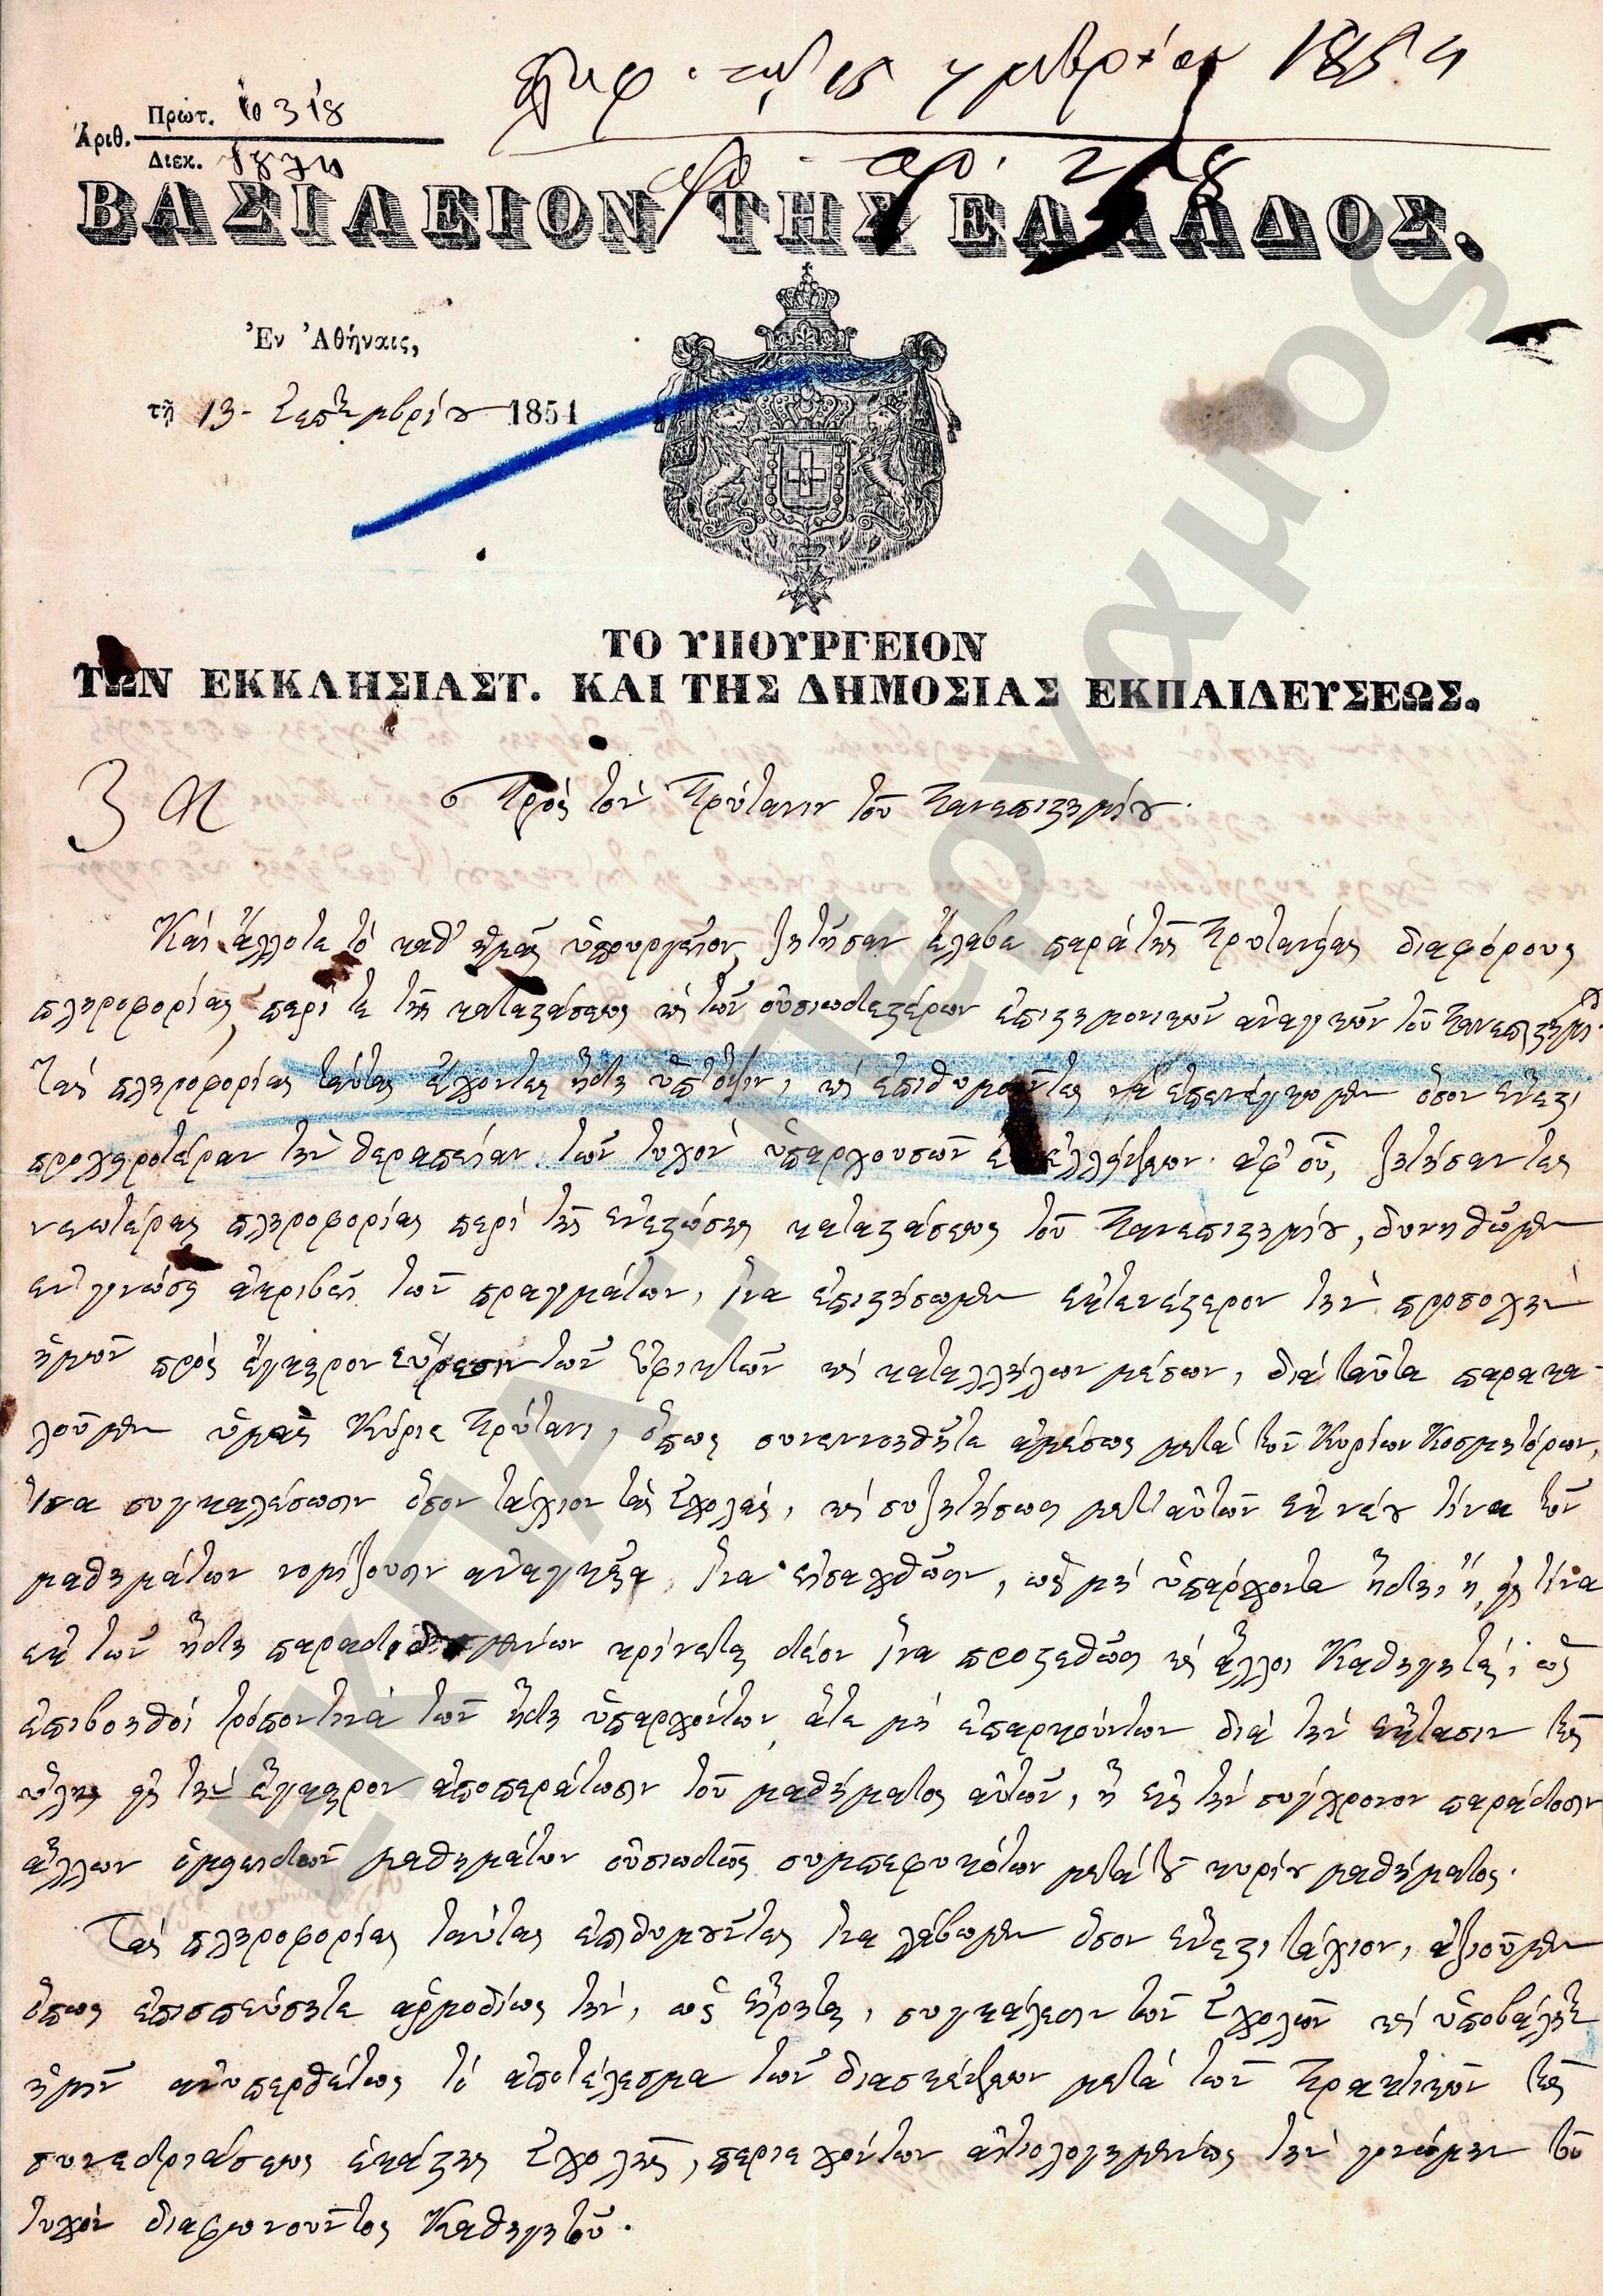 Ἀριθ. Πρωτ. 10318
Διεκ.
ΒΑΣΙΛΕΙΟΝ ΤΗΣ ΕΛΛΑΔΟΣ.
Ἐν Ἀθήναις,
τῇ 13 - Σεπτεμβρίου 1851
ΤΟ ΥΠΟΥΡΓΕΙΟΝ
ΤΩΝ ΕΚΚΛΗΣΙΑΣΤ. ΚΑΙ ΤΗΣ ΔΗΜΟΣΙΑΣ ΕΚΠΑΙΔΕΥΣΕΩΣ.
Πρὸς τὸν Πρύτανιν τοῦ Πανεπιστημίου.
Καὶ ἄλλοτε τὸ καθ' ἡμᾶς ὑπουργεῖον ζητῆσαν ἔλαβε παρὰ τῆς Πρυτανείας διαφόρους
πληροφορίας περί τε τῆς καταστάσεως καὶ τῶν οὐσιωδεστέρων ἐπιστημονικῶν ἀναγκῶν τοῦ Πανεπιστημίου.
Τὰς πληροφορίας ταύτας ἔχοντες ἤδη ὑπ' ὄψιν, καὶ ἐπιθυμοῦντες νὰ ἐπενέγκωμεν ὅσον ἔνεστι
προχειροτέραν τὴν θεραπείαν τῶν τυχὸν ὑπαρχουσῶν ἐλλείψεων. ἀφ' οὗ, ζητήσαντες
νεωτέρας πληροφορίας περὶ τῆς ἐνεστώσης καταστάσεως τοῦ Πανεπιστημίου, δυνηθῶμεν
ἐν γνώσει ἀκριβεῖ τῶν πραγμάτων, ἵνα ἐπιστήσωμεν ἐκτενέστερον τὴν προσοχὴν
ἡμῶν πρὸς ἔγκαιρον εὕρεσιν τῶν ἐφικτῶν καὶ καταλλήλων μέσων, διὰ ταῦτα παρακα-
λοῦμεν ὑμᾶς Κύριε Πρύτανι, ὅπως συνεννοηθῆτε ἀμέσως μετὰ τῶν Κυρίων Κοσμητόρων,
ἵνα συγκαλέσωσιν ὅσον τάχιον τὰς Σχολάς, καὶ συζητήσωσι μετ' αὐτῶν ἐκ νέου τίνα τῶν
μαθημάτων νομίζουσιν ἀναγκαῖα ἵνα εἰσαχθῶσιν, ὡς μὴ ὑπάρχοντα ἤδη, ἢ εἰς τίνα
ἐκ τῶν ἤδη παραδιδομένων κρίνεται δέον ἵνα προστεθῶσι καὶ ἄλλοι Καθηγηταί, ὡς
ἐπιβοηθοὶ τρόπον τινὰ τῶν ἤδη ὑπαρχόντων, ἅτε μὴ ἐπαρκούντων διὰ τὴν ἔκτασιν τῆς
ὕλης εἰς τὴν ἔγκαιρον ἀποπεράτωσιν τοῦ μαθήματος αὐτῶν, ἢ εἰς τὴν σύγχρονον παράδοσιν
ἄλλων ὁμοειδῶν μαθημάτων οὐσιωδῶς συμπεφυκότων μετὰ τοῦ κυρίου μαθήματος.
Τὰς πληροφορίας ταύτας ἐπιθυμοῦντες ἵνα λάβωμεν ὅσον ἔνεστι τάχιον, ἀξιοῦμεν
ὅπως ἐπισπεύσητε ἁρμοδίως τήν, ὡς εἴρηται, συγκάλεσιν τῶν Σχολῶν καὶ ὑποβάλητε
ἡμῖν ἀνυπερθέτως τὸ ἀποτέλεσμα τῶν διασκέψεων μετὰ τῶν Πρακτικῶν τῆς
συνεδριάσεως ἑκάστης Σχολῆς, περιεχόντων αἰτιολογημένως τὴν γνώμην τοῦ
τυχὸν διαφωνοῦντος Καθηγητοῦ.
ΕΚΠΑ.: Πέργαμος